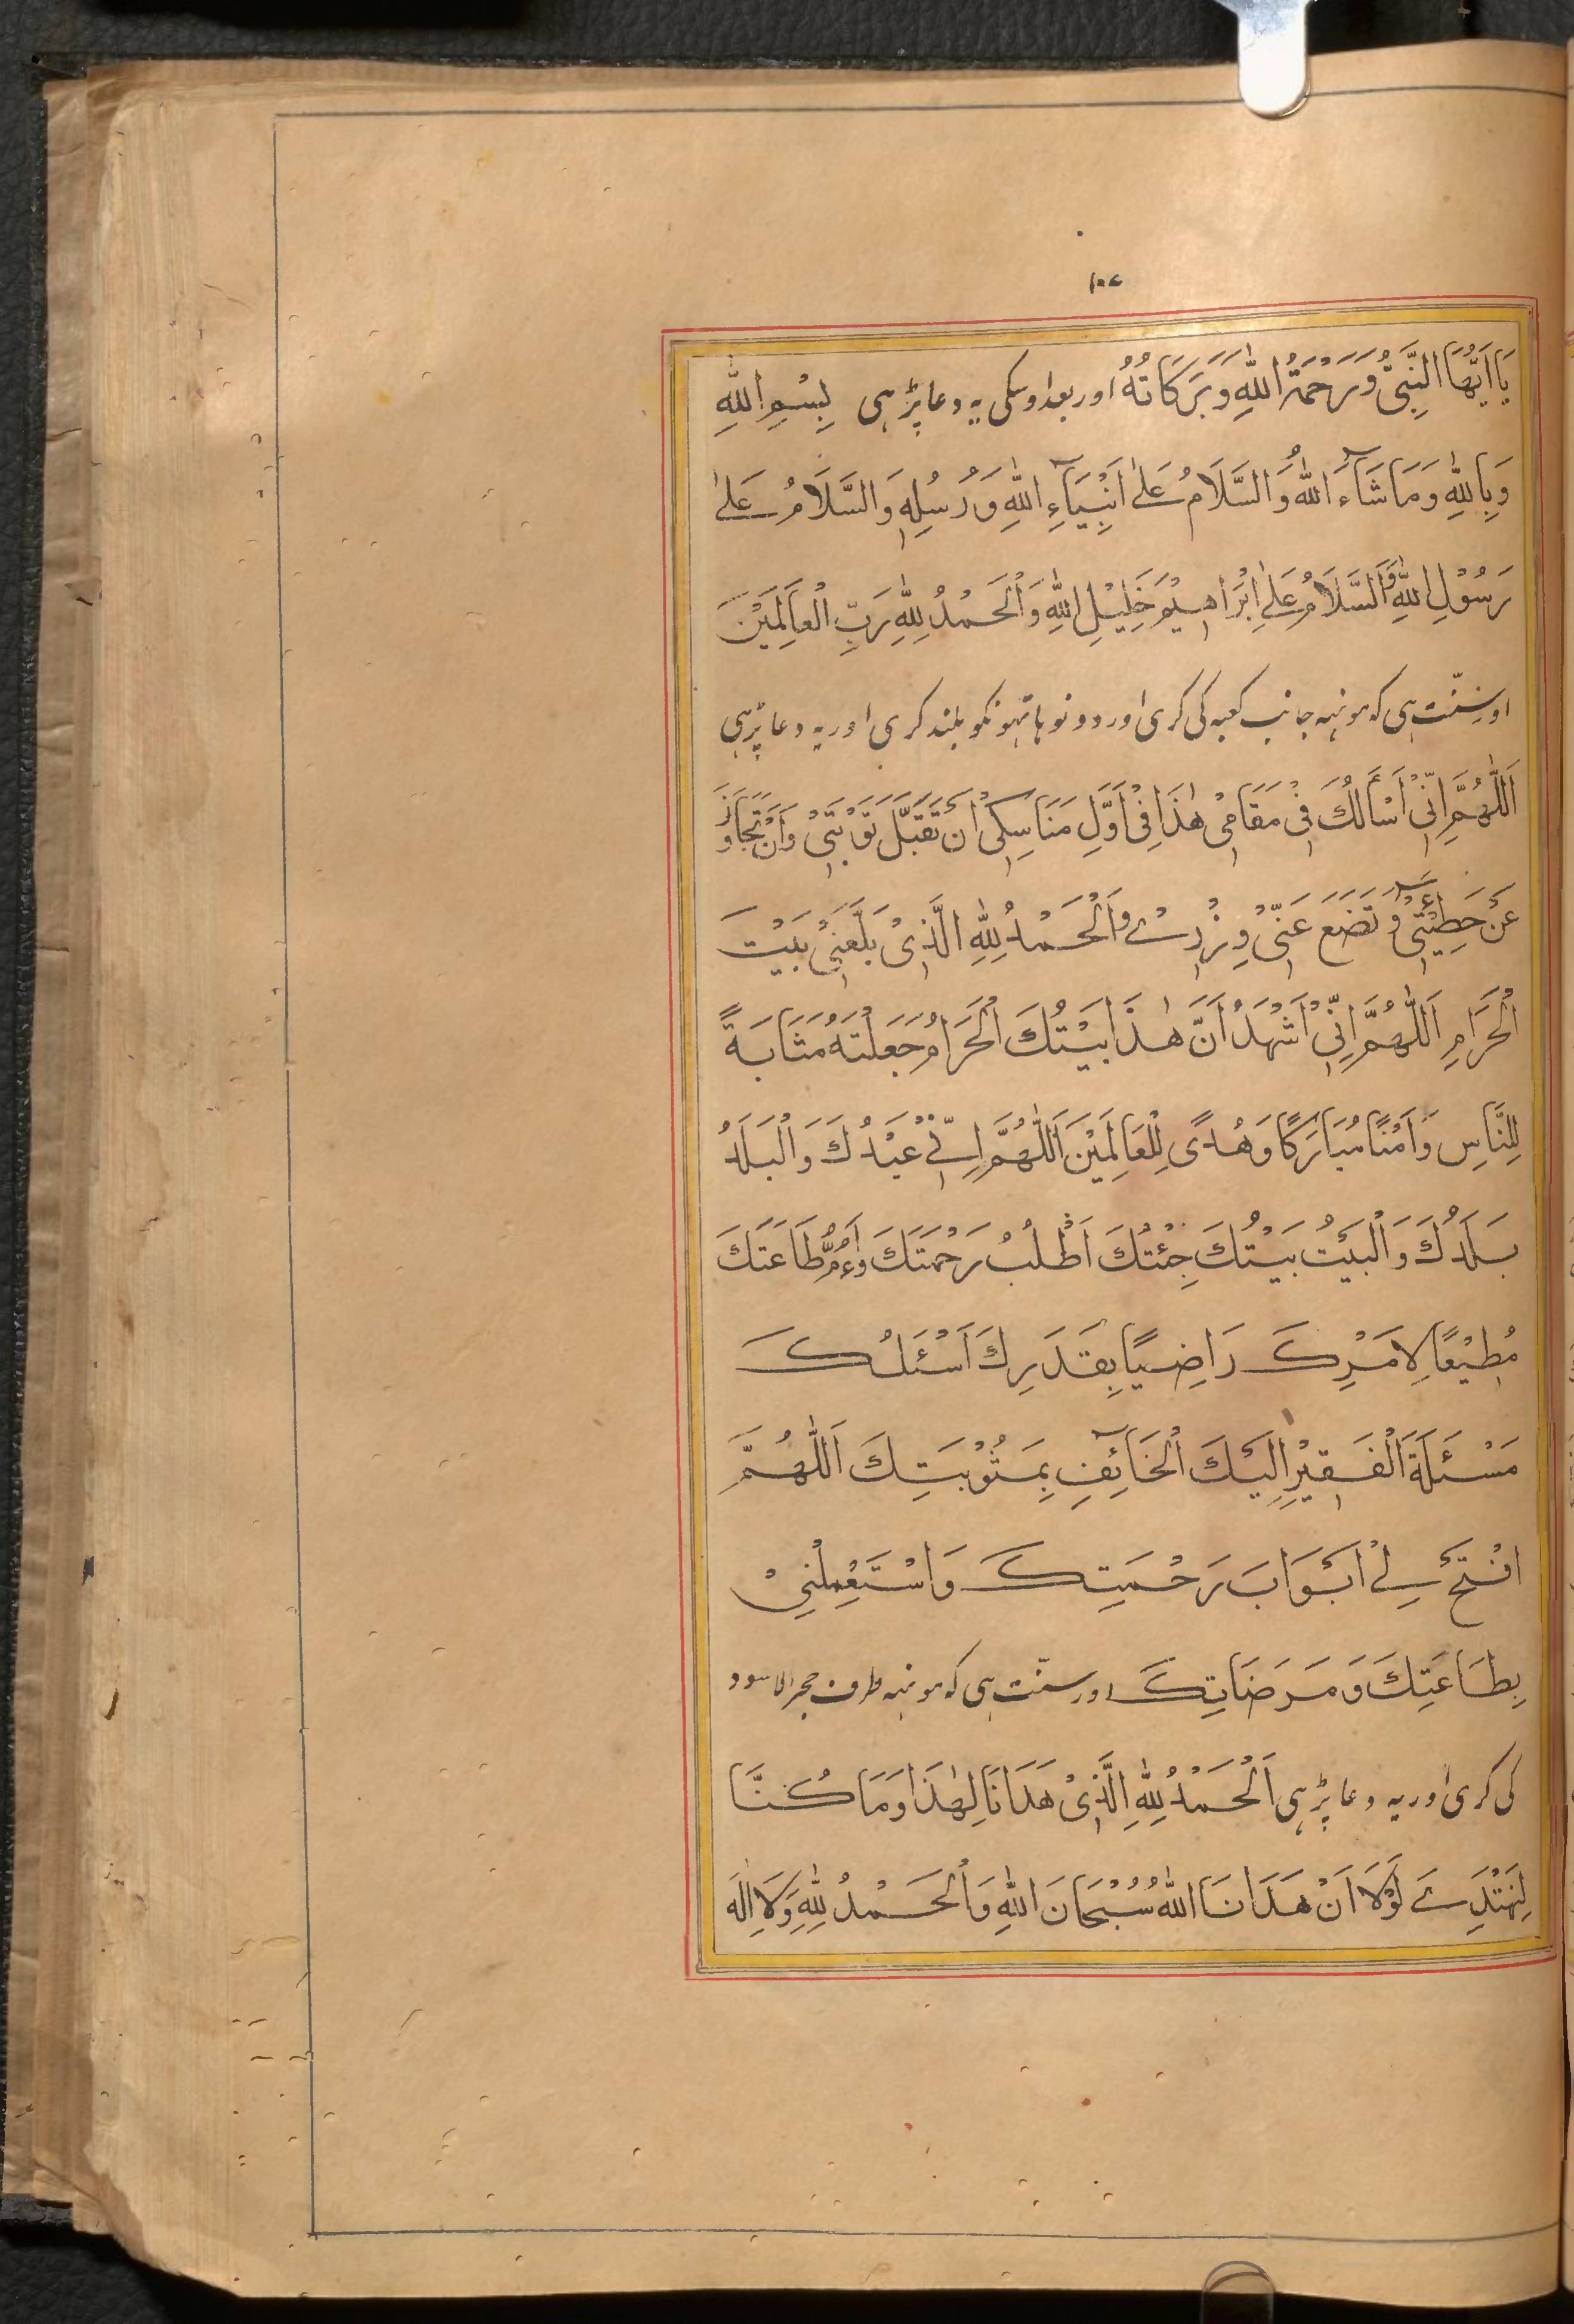 ۱۰۷
يَا اَيُّهَا النَّبِيُّ وَرَحْمَةُ اللّٰهِ وَبَرَكَاتُهُ اور بعد اوسکی یہ دعا پڑہی بِسْمِ اللّٰهِ
وَبِاللّٰهِ وَمَا شَآءَ اللّٰهُ وَالسَّلَامُ عَلٰى اَنْبِيَآءِ اللّٰهِ وَرُسُلِهٖ وَالسَّلَامُ عَلٰى
رَسُوْلِ اللّٰهِ وَالسَّلَامُ عَلٰى اِبْرَاهِيْمَ خَلِيْلِ اللّٰهِ وَالْحَمْدُ لِلّٰهِ رَبِّ الْعَالَمِيْنَ
اور سنّت ہی کہ مونہہ جانب کعبہ کی کری اور دونو ہاتہونکو بلند کری اور یہ دعا پڑہی
اَللّٰهُمَّ اِنِّيْ اَسْأَلُكَ فِيْ مَقَامِيْ هٰذَا فِيْ اَوَّلِ مَنَاسِكِيْ اَنْ تَقَبَّلَ تَوْبَتِيْ وَاَنْ تَجَاوَزَ
عَنْ خَطِيْئَتِيْ وَتَضَعَ عَنِّيْ وِزْرِيْ وَالْحَمْدُ لِلّٰهِ الَّذِيْ بَلَّغَنِيْ بَيْتَ
الْحَرَامِ اَللّٰهُمَّ اِنِّيْ اَشْهَدُ اَنَّ هٰذَا بَيْتُكَ الْحَرَامُ جَعَلْتَهُ مَثَابَةً
لِلنَّاسِ وَاَمْنًا مُبَارَكًا وَهُدًى لِلْعَالَمِيْنَ اَللّٰهُمَّ اِنِّيْ عَبْدُكَ وَالْبَلَدُ
بَلَدُكَ وَالْبَيْتُ بَيْتُكَ جِئْتُكَ اَطْلُبُ رَحْمَتَكَ وَاَءُمُّ طَاعَتَكَ
مُطِيْعًا لِاَمْرِكَ رَاضِيًا بِقَدَرِكَ اَسْئَلُكَ
مَسْئَلَةَ الْفَقِيْرِ اِلَيْكَ الْخَآئِفِ بِمَثُوْبَتِكَ اَللّٰهُمَّ
افْتَحْ لِيْ اَبْوَابَ رَحْمَتِكَ وَاسْتَعْمِلْنِيْ
بِطَاعَتِكَ وَمَرَضَاتِكَ اور سنّت ہی کہ مونہہ طرف حجرالاسود
کی کری اور یہ دعا پڑہی اَلْحَمْدُ لِلّٰهِ الَّذِيْ هَدَانَا لِهٰذَا وَمَا كُنَّا
لِنَهْتَدِيَ لَوْلَا اَنْ هَدَانَا اللّٰهُ سُبْحَانَ اللّٰهِ وَالْحَمْدُ لِلّٰهِ وَلَا اِلٰهَ